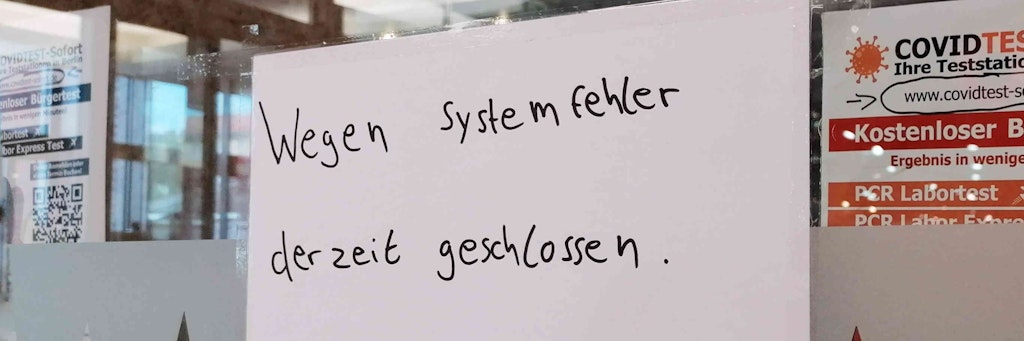 Wegen Systemfehler
derzeit geschlossen.
COVIDTEST-Sofort
Ihre Teststationen in Berlin
Kostenloser Bürgertest
Labortest
Labor Express Test
COVIDTES
Ihre Teststatio
www.covidtest-so
Kostenloser B
Ergebnis in wenige
PCR Labortest
PCR Labor Expre